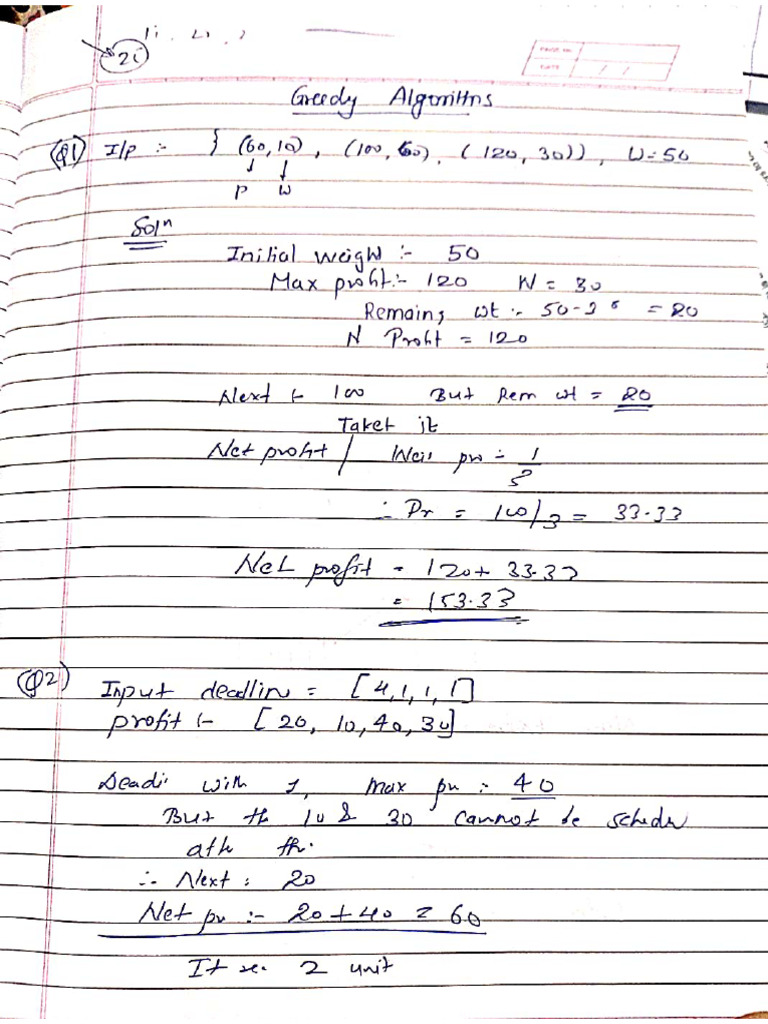 2i
PAGE NO.
DATE / /
Greedy Algorithms
Q1) I/p :- { (60, 10), (100, 60), (120, 30)), W=50
P W
Soln
Initial weight :- 50
Max profit :- 120 W = 30
Remaing wt :- 50-30 = 20
N Profit = 120
Next :- 100 But Rem wt = 20
Taket it
Net profit / pr =
∴ Pr = 100/3 = 33.33
Net profit = 120 + 33.33
= 153.33
Q2) Input deadlin = [4,1,1,1]
profit :- [20, 10, 40, 30]
Deadi with 1, max pr : 40
But th 10 & 30 cannot be
th.
∴ Next : 20
Net pr :- 20 + 40 = 60
It 2 unit